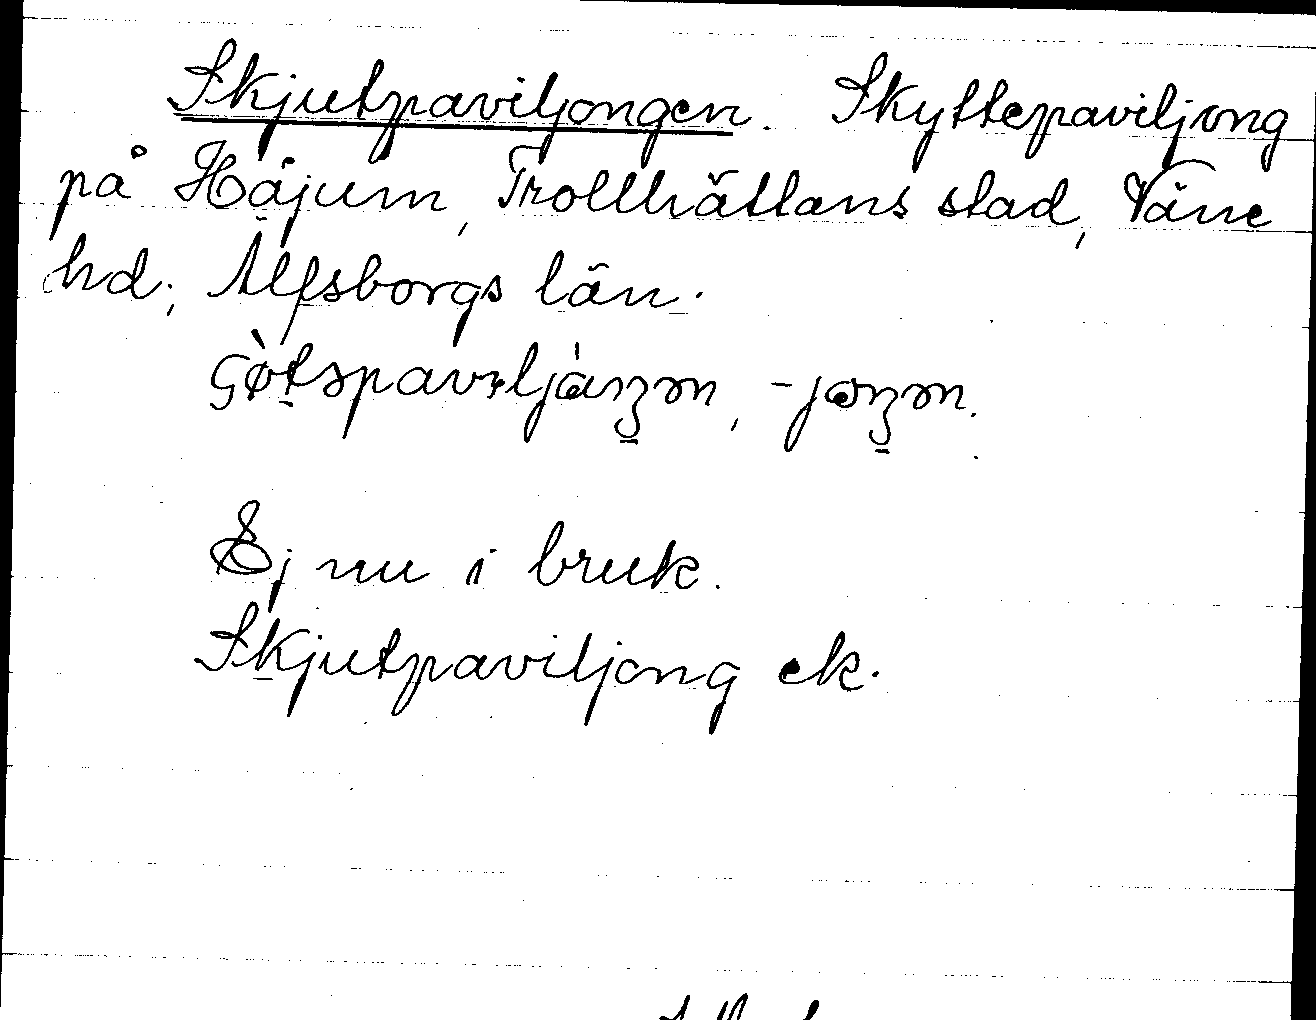 Skjutpaviljongen. Skyttepaviljong
på Håjum, Trollhättans stad, Väne
hd; Älfsborgs län.
Ej nu i bruk.
Skjutpaviljong ek.